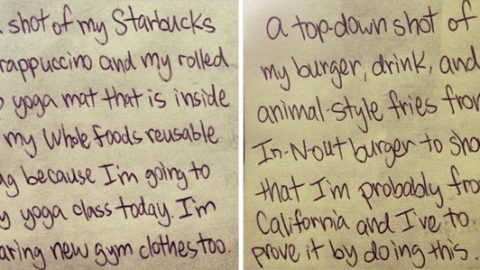 shot of my Starbucks
rappuccino and my rolled
yoga mat that is inside
my Whole Foods reusable
ag because I'm going to
y yoga class today. I'm
aring new gym clothes too.
a top-down shot of
my burger, drink, and
animal-style fries from
In-N-Out burger to sho
that I'm probably fro
California and I've to
prove it by doing this.